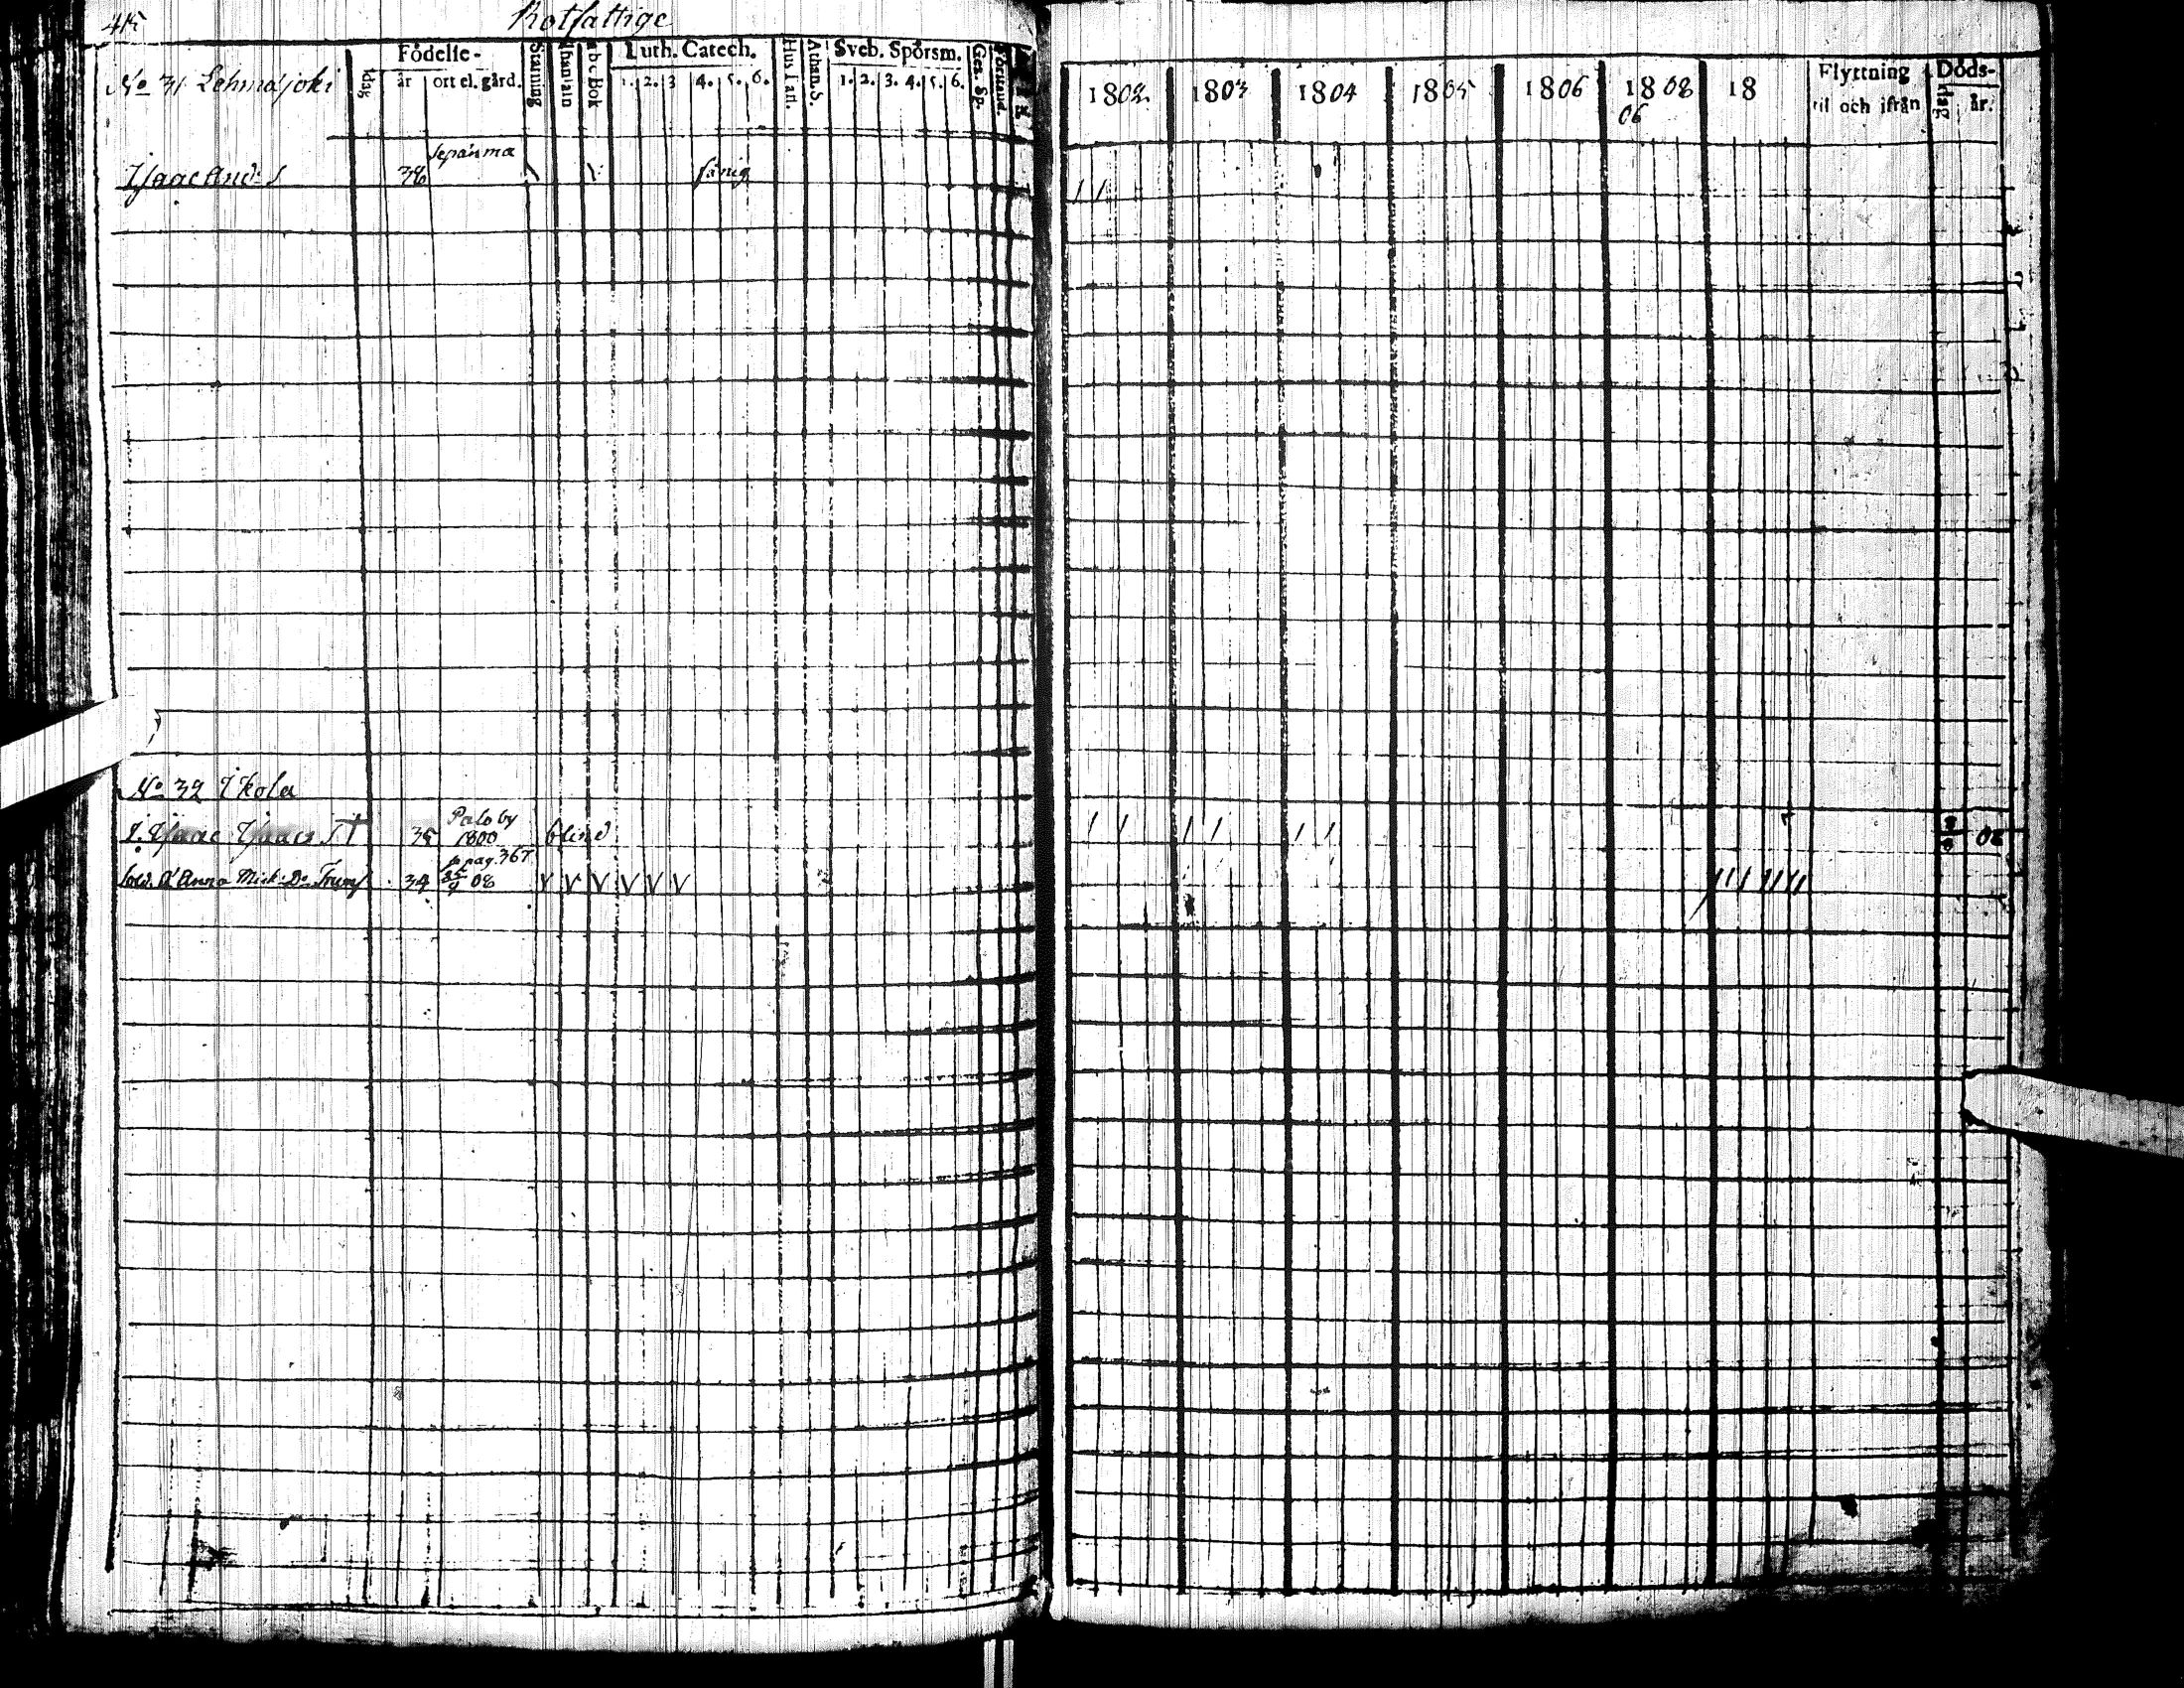 415 Rotfattige
Födelse- Stafning Abc-Bok Luth. Catech. Hus Tafl. Athan. S. Sveb. Spörsm. Gez. Sp. Förstånd.
dag år ort el. gård. 1. 2. 3 4. 5. 6. 1. 2. 3. 4. 5. 6.
1802 1803 1804 1805 1806 1808 18 Flyttning Döds-
06 til och ifrån dag år.
No 31 Lehmäjoki
Sepänmä
Isaac And: S 38
No 32 Ikola
Palo by
I. Isaac Isaacs S † 35 1800 blind 08
pag. 367
Anna Mick: Dr 34 08 v v v v v v